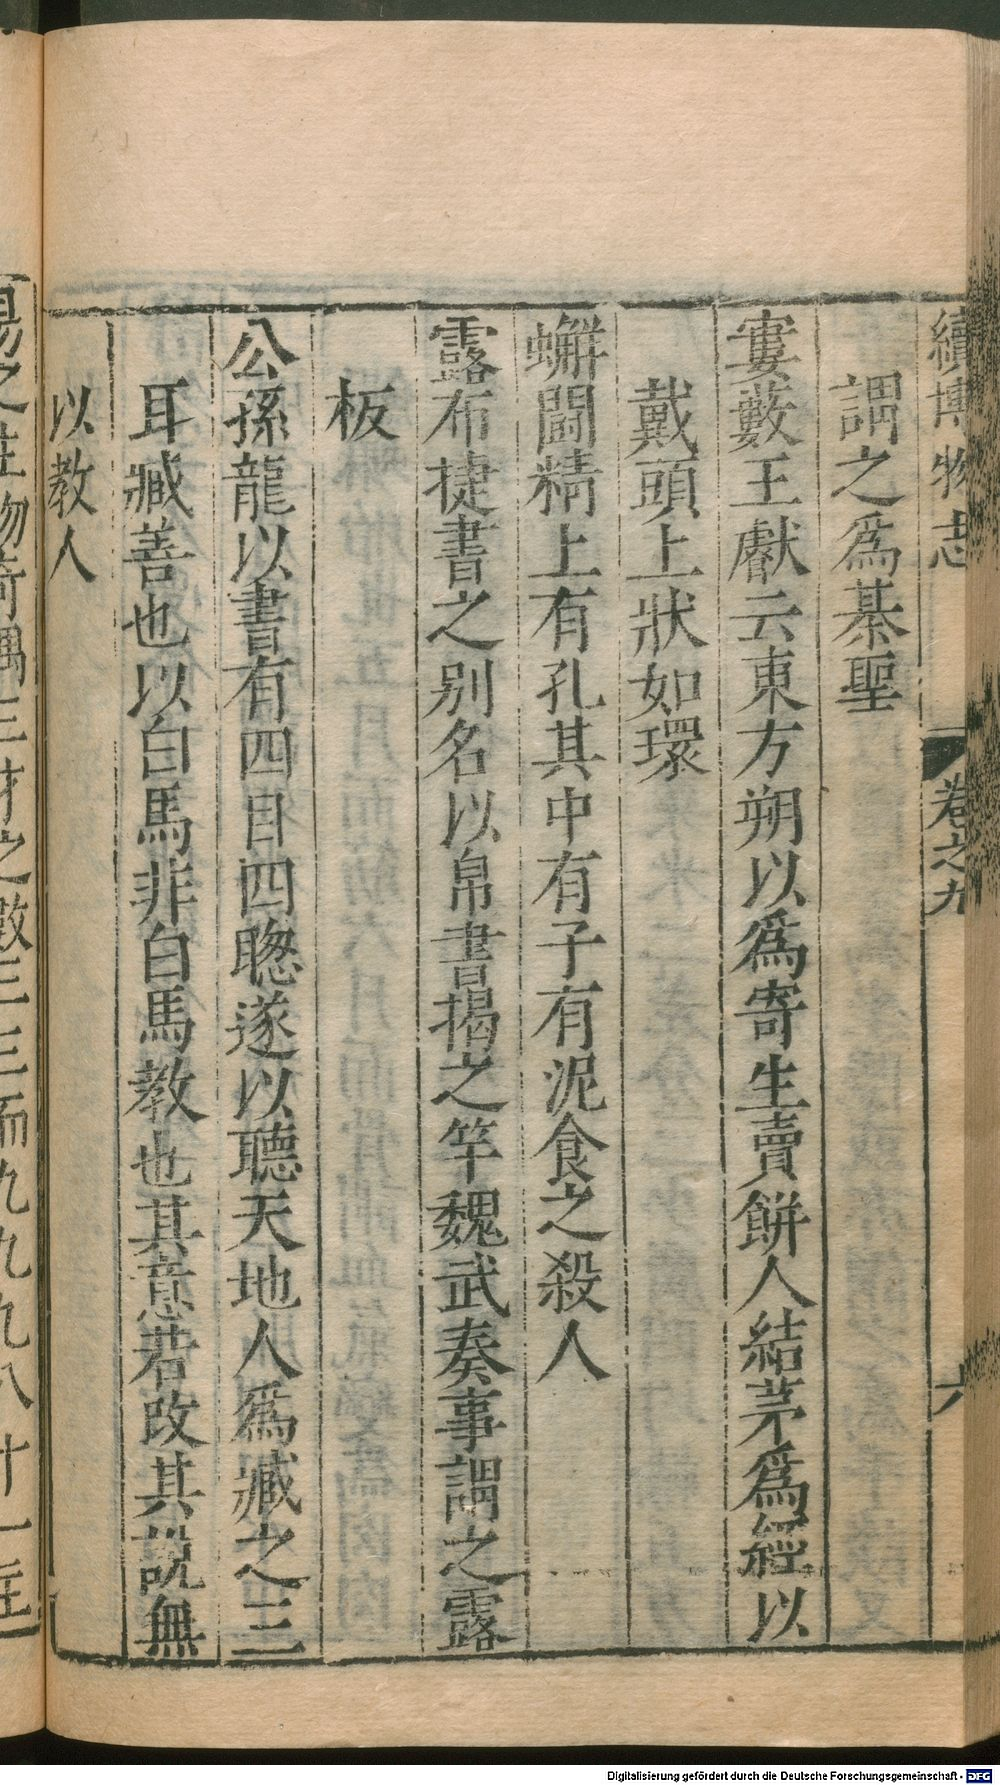 續博物志
卷之九
六
謂之爲綦聖
寠藪王獻云東方朔以爲寄生賣餅人結茅爲經以
戴頭上狀如環
蠏闘精上有孔其中有子有泥食之殺人
露布捷書之别名以帛書揭之竿魏武奏事謂之露
板
公孫龍以書有四目四聰遂以聽天地人爲臧之三
耳臧善也以白馬非白馬教也其意若改其說無
以教人
Digitalisierung gefördert durch die Deutsche Forschungsgemeinschaft - DFG